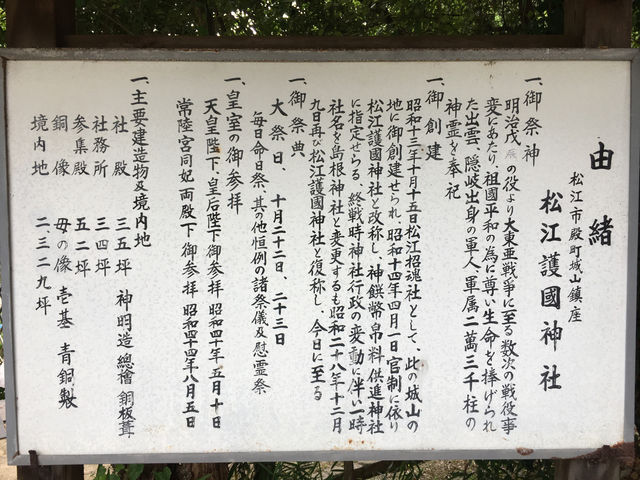 由緒
松江市殿町城山鎮座
松江護國神社
一、御祭神
明治戊辰の役より大東亜戦争に至る数次の戦役事
変にあたり、祖國平和の為に尊い生命を捧げられ
た出雲、隠岐出身の軍人 軍属二萬三千柱の
神霊を奉祀
一、御創建
昭和十三年十月十五日松江招魂社として、此の城山の
地に御創建せられ、昭和十四年四月一日官制に依り
松江護國神社と改称し、神饌幣帛料供進神社
に指定せらる、終戦時神社行政の変動に伴い一時
社名を島根神社と変更するも昭和二十八年十二月
九日再び松江護國神社と復称し、今日に至る
一、御祭典
大祭日、 十月二十二日、二十三日
毎日命日祭、其の他恒例の諸祭儀及び慰霊祭
一、皇室の御参拝
天皇陛下、皇后陛下御参拝 昭和四十年五月十日
常陸宮同妃両殿下御参拝 昭和四十四年八月五日
一、主要建造物及境内地
社殿 三五坪 神明造 總檜 銅板葺
社務所 三四坪
参集殿 五二坪
銅像 母の像 壱基 青銅製
境内地 二、三二九坪